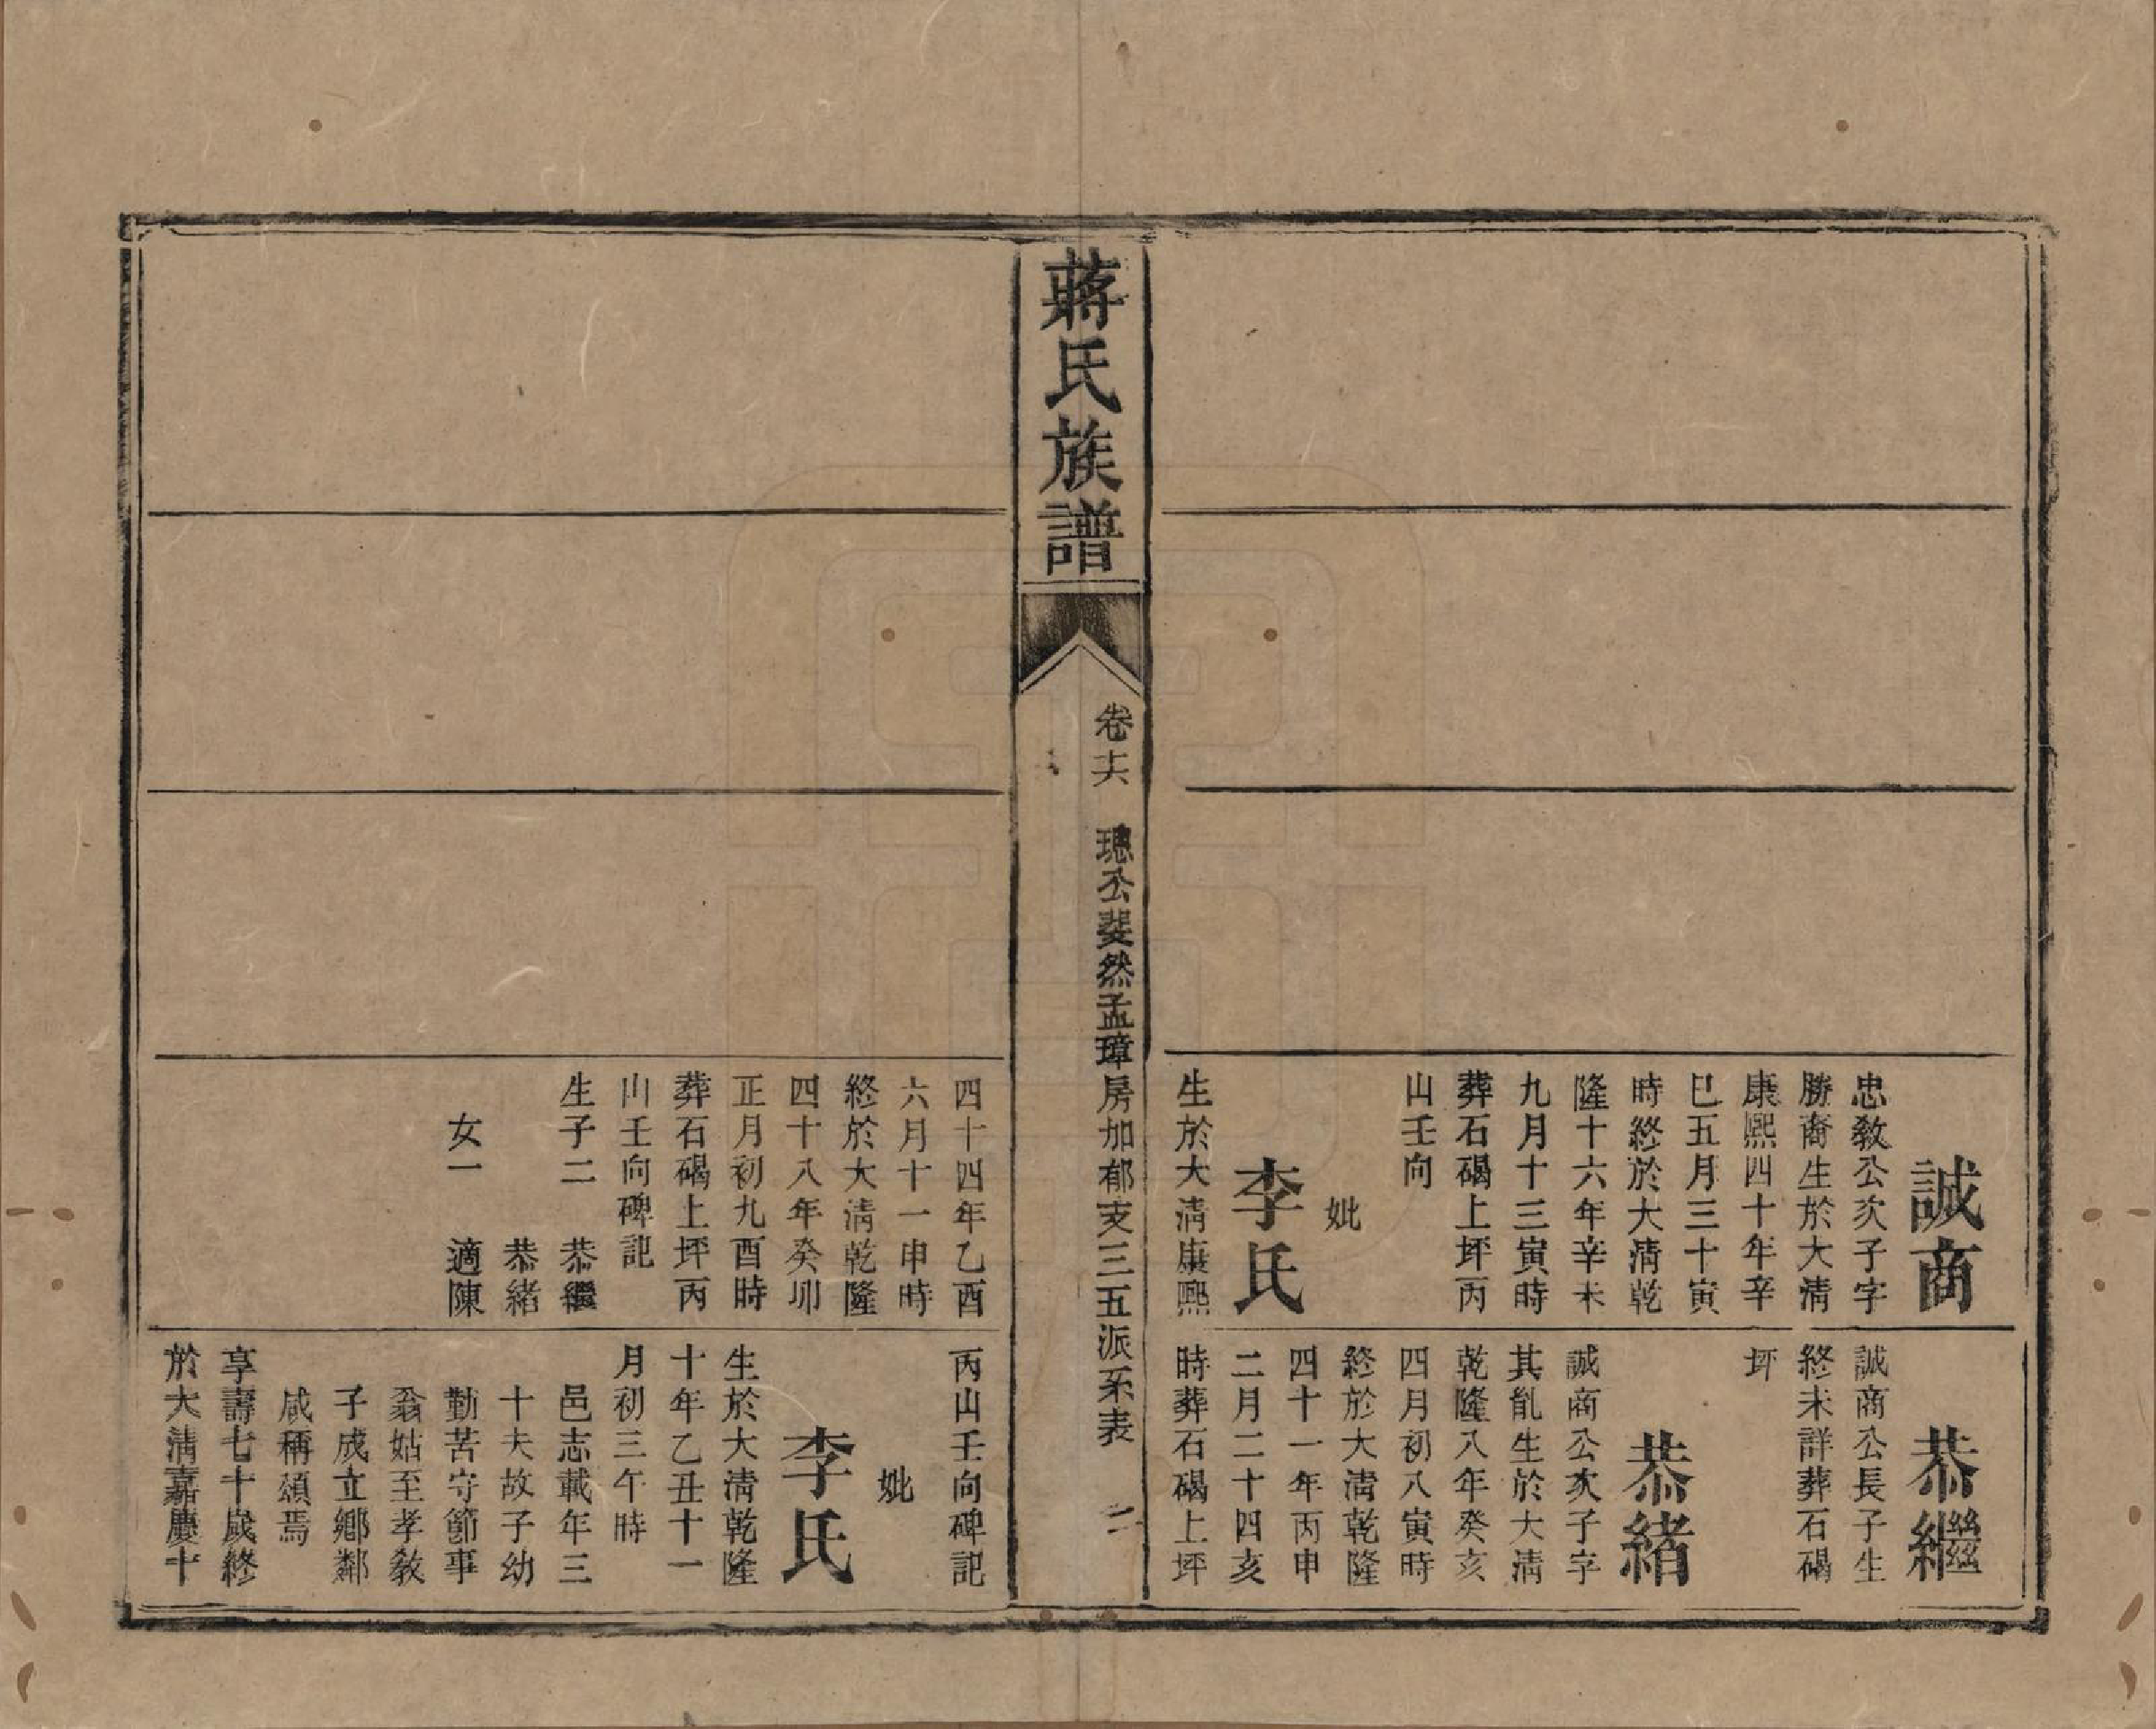 誠商
忠教公次子字
勝裔生於大清
康熙四十年辛
巳五月三十寅
時終於大清乾
隆十六年辛未
九月十三寅時
葬石碣上坪丙
山壬向
妣
李氏
生於大清康熙
恭繼
誠商公長子生
終未詳葬石碣
坪
恭緒
誠商公次子字
其能生於大清
乾隆八年癸亥
四月初八寅時
終於大清乾隆
四十一年丙申
二月二十四亥
時葬石碣上坪
蔣氏族譜
卷十六 璁公斐然孟璋房加郁支三五派系表 二
四十四年乙酉
六月十一申時
終於大清乾隆
四十八年癸卯
正月初九酉時
葬石碣上坪丙
山壬向碑記
生子二 恭繼
恭緒
女一 適陳
丙山壬向碑記
妣
李氏
生於大清乾隆
十年乙丑十一
月初三午時
邑志載年三
十夫故子幼
勤苦守節事
翁姑至孝教
子成立鄉鄰
咸稱頌焉
享壽七十歲終
於大清嘉慶十